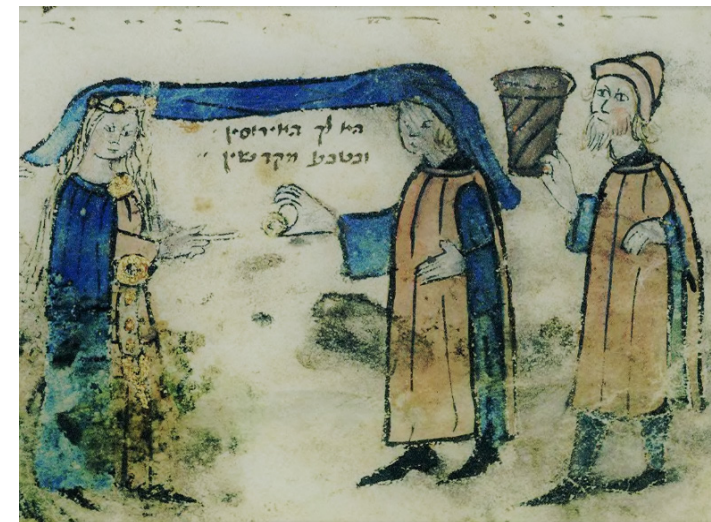 הא לך האירוסין
ובטבע מקדשין